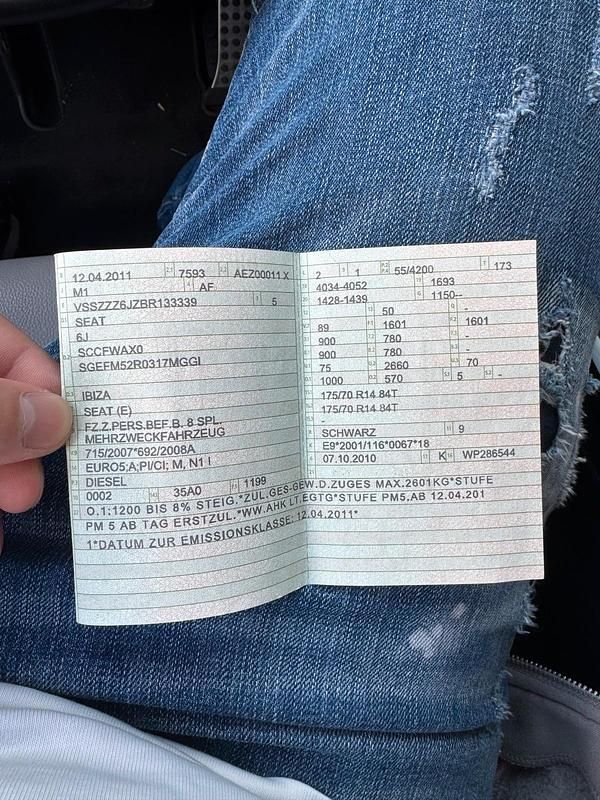 12.04.2011 7593 AEZ00011 X
M1 AF
VSSZZZ6JZBR133339 5
SEAT
6J
SCCFWAX0
SGEFM52R0317MGGI
IBIZA
SEAT (E)
FZ.Z.PERS.BEF.B. 8 SPL.
MEHRZWECKFAHRZEUG
715/2007*692/2008A
EURO5;A;PI/CI; M, N1 I
DIESEL
0002 35A0 1199
O.1:1200 BIS 8% STEIG.*ZUL.GES-GEW.D.ZUGES MAX.2601KG*STUFE
PM 5 AB TAG ERSTZUL.*WW.AHK LT.EGTG*STUFE PM5,AB 12.04.201
1*DATUM ZUR EMISSIONSKLASSE: 12.04.2011*
2 1 55/4200 173
4034-4052 1693
1428-1439 1150--
50 -
89 1601 1601
900 780 -
900 780 -
75 2660 70
1000 570 5 -
175/70 R14 84T
175/70 R14 84T
-
SCHWARZ 9
E9*2001/116*0067*18
07.10.2010 K WP286544